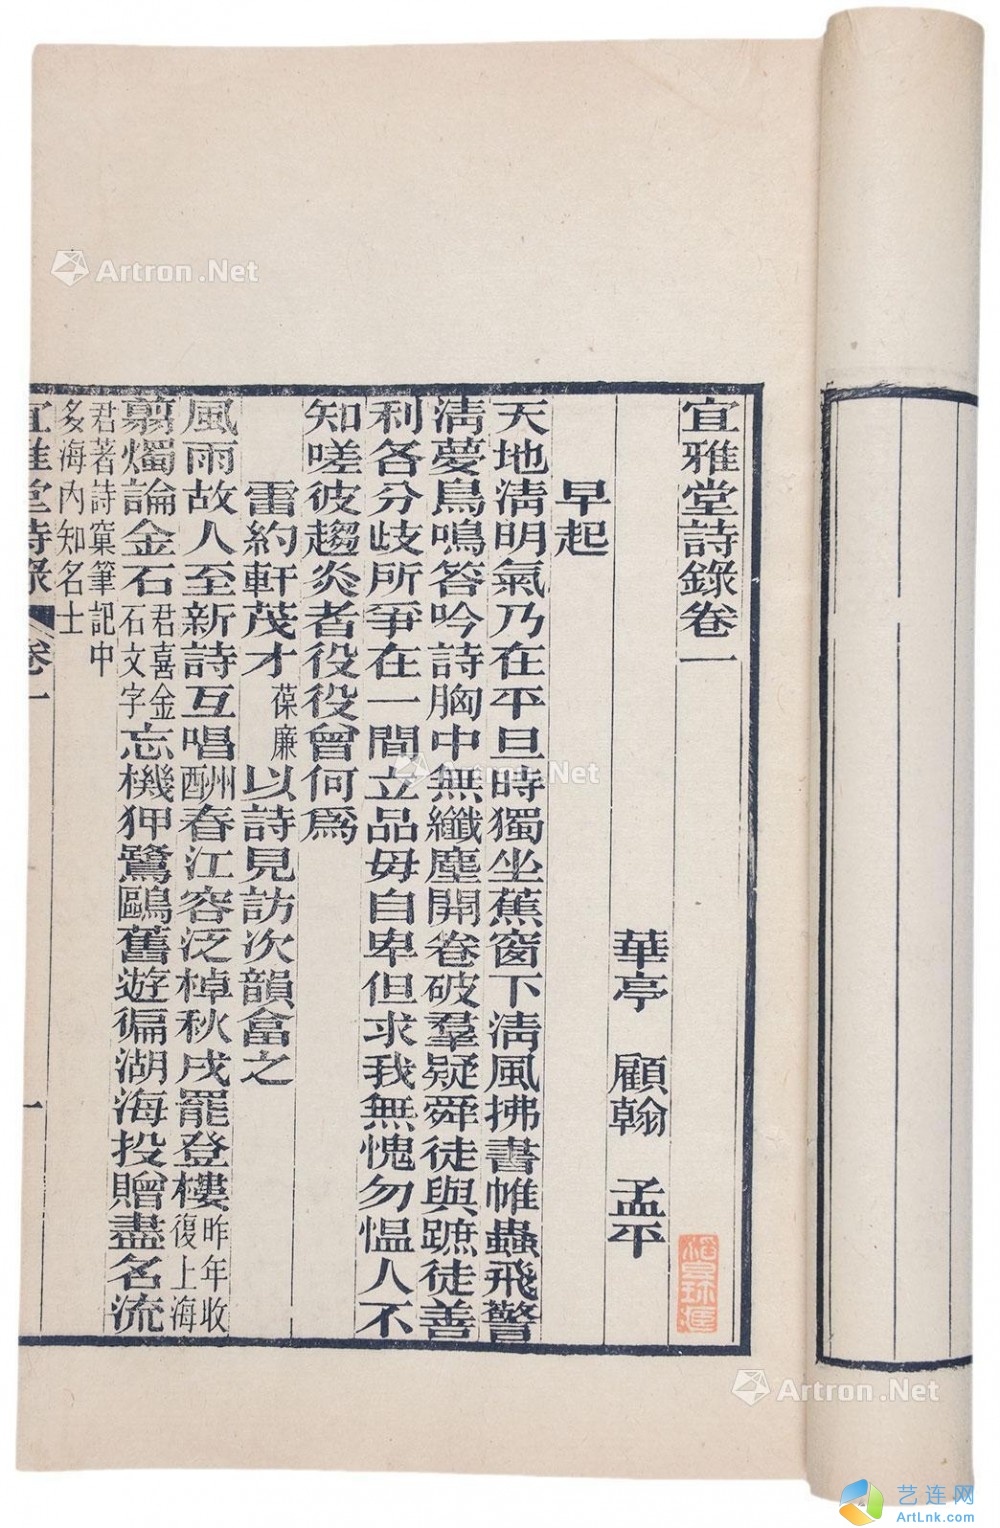 宜雅堂詩錄卷一
華亭 顧翰 孟平
早起
天地淸明氣乃在平旦時獨坐蕉窗下淸風拂書帷蟲飛警
淸夢鳥鳴答吟詩胸中無纖塵開卷破羣疑舜徒與蹠徒善
利各分歧所爭在一間立品毋自卑但求我無愧勿慍人不
知嗟彼趨炎者役役曾何爲
雷約軒茂才葆廉以詩見訪次韻畣之
風雨故人至新詩互唱酬春江容泛棹秋戍罷登樓昨年收復上海
翦燭論金石君喜金石文字忘機狎鷺鷗舊遊徧湖海投贈盡名流
君著詩窠筆記中
多海內知名士
宜雅堂詩錄 卷一 一
Artron.Net
Artron.Net
Artron.Net
艺连网
ArtLnk.com